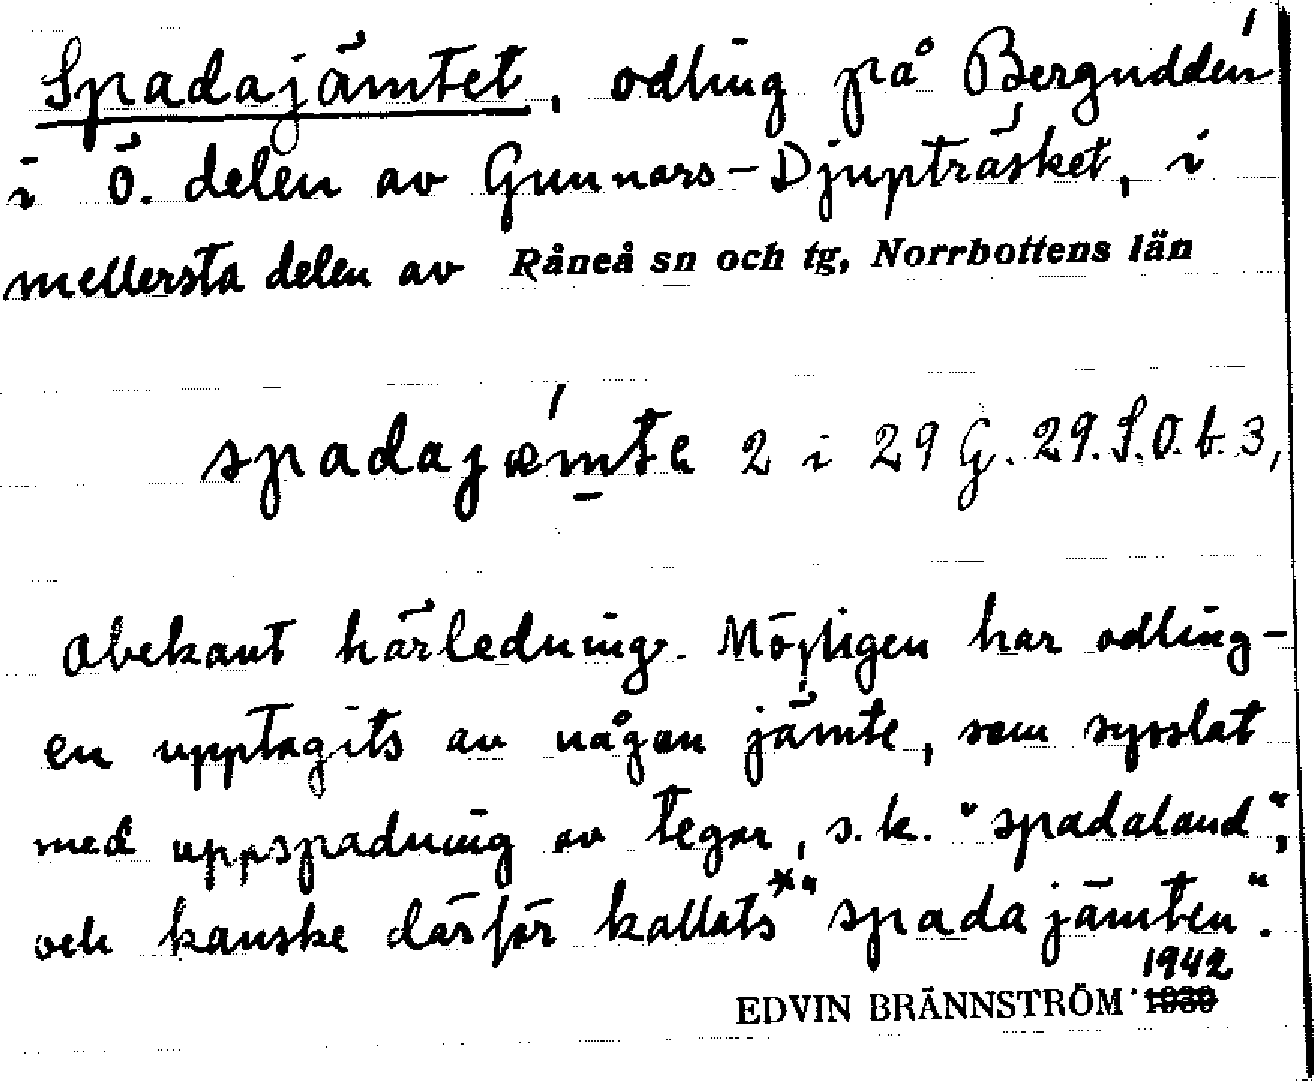 Spadajämtet, odling på Bergudden
i ö. delen av Gunnars-Djupträsket, i
mellersta delen av Råneå sn och tg, Norrbottens län
spadajæmte 2 i 29 G. 29. S.O.b.3,
Obekant härledning. Möjligen har odling-
en upptagits av någon jämte, som sysslat
med uppspadning av tegar, s.k. "spadaland",
och kanske därför kallats* "spadajämten".
1942
EDVIN BRÄNNSTRÖM 1939